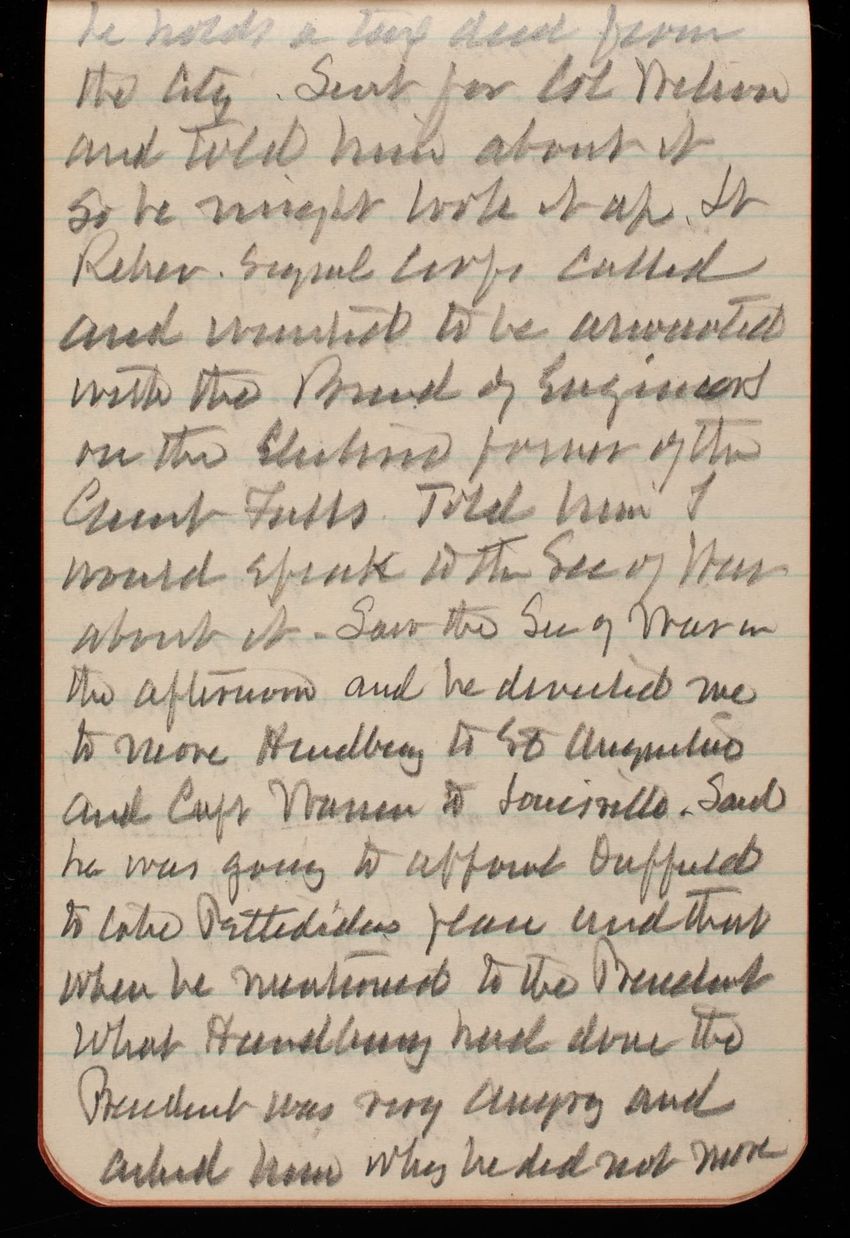 he holds a tax deed from
the City. Sent for Col Wilson
and told him about it
So he might look it up. Lt
Reber. Signal Corps called
and wanted to be
with the Board of Engineers
on the Electric power of the
Great Falls. Told him I
would speak to the Sec of War
about it - Saw the Sec of War in
the afternoon and he directed me
to move Handbury to St Augustine
and Capt Warren to Louisville. Said
he was going to appoint Duffield
to take place and that
when he mentioned to the President
What Handbury had done the
President was very angry and
asked him why he did not move